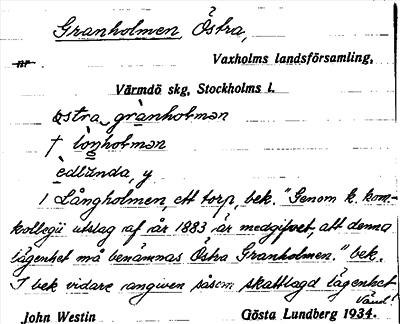 Granholmen, Östra,
Vaxholms landsförsamling,
Värmdö skg, Stockholms l.
östra grànholmən
† lòŋholmən
1 Långholmen, ett torp, bek. "Genom k. kom-
kollegii utslag af år 1883 är medgifvet, att denna
lägenhet må benämnas Östra Granholmen." bek.
I bek vidare angiven såsom skattlagd lägenhet
John Westin
Gösta Lundberg 1934.